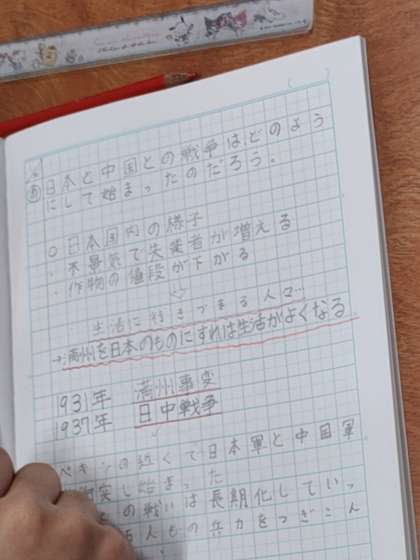 め
日本と中国との戦争は、どのよう
にして始まったのだろう。
○日本国内の様子
・不景気で失業者が増える
・作物の値段が下がる
生活に行きづまる人々…
→満州を日本のものにすれば生活がよくなる
1931年 満州事変
1937年 日中戦争
ペキンの近くで日本軍と中国軍
突し始まった
の戦いは長期化していっ
人もの兵力をつぎこん